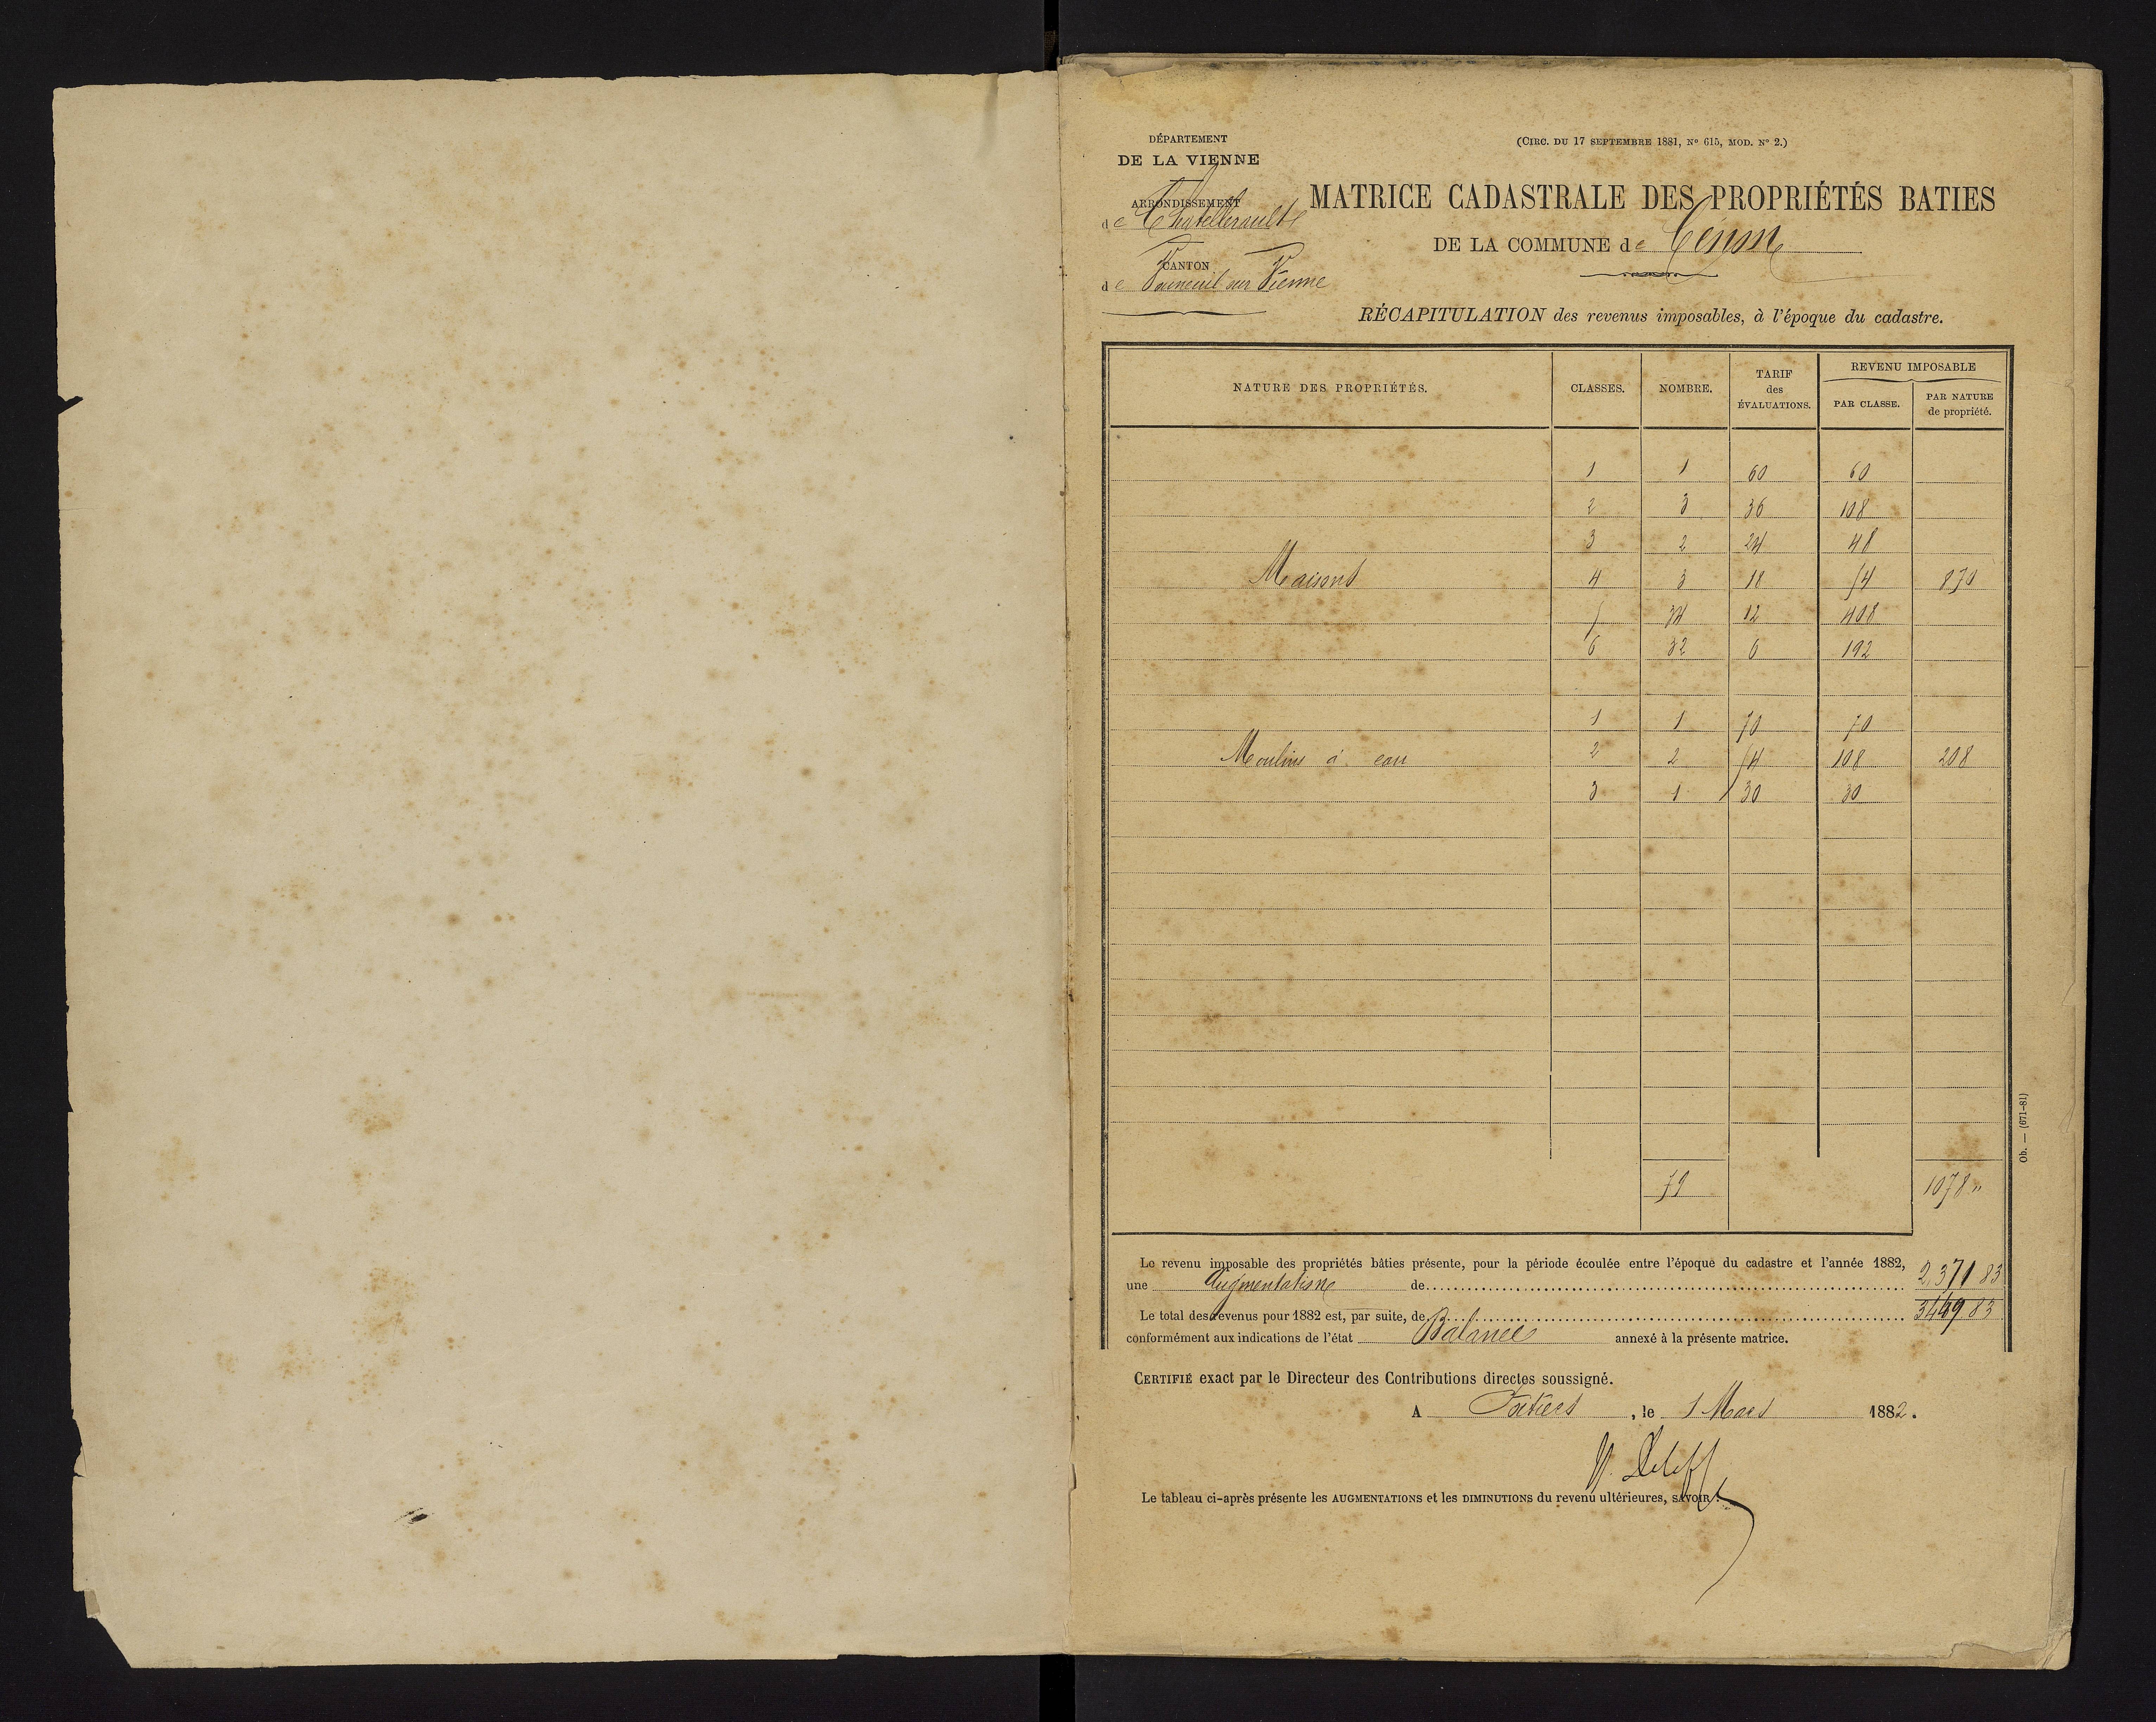 DÉPARTEMENT
DE LA VIENNE
ARRONDISSEMENT
de Chatellerault
CANTON
de Vouneuil sur Vienne
(CIRC. DU 17 SEPTEMBRE 1881, N° 615, MOD. N° 2.)
MATRICE CADASTRALE DES PROPRIÉTÉS BATIES
DE LA COMMUNE de Cenon
RÉCAPITULATION des revenus imposables, à l'époque du cadastre.
NATURE DES PROPRIÉTÉS. CLASSES. NOMBRE. TARIF des ÉVALUATIONS. REVENU IMPOSABLE PAR CLASSE. PAR NATURE de propriété.
1 1 60 60
2 3 36 108
3 2 24 48
Maisons 4 3 18 54 870
5 34 12 408
6 32 6 192
1 1 70 70
Moulins à eau 2 2 54 108 208
3 1 30 30
79 1078 "
Le revenu imposable des propriétés bâties présente, pour la période écoulée entre l'époque du cadastre et l'année 1882,
une Augmentation de 2,371 83
Le total des revenus pour 1882 est, par suite, de 3449 83
conformément aux indications de l'état Balance annexé à la présente matrice.
CERTIFIÉ exact par le Directeur des Contributions directes soussigné.
A Poitiers, le 1 Mars 1882.
Le tableau ci-après présente les AUGMENTATIONS et les DIMINUTIONS du revenu ultérieures, SAVOIR :
Ob. — (671-81)